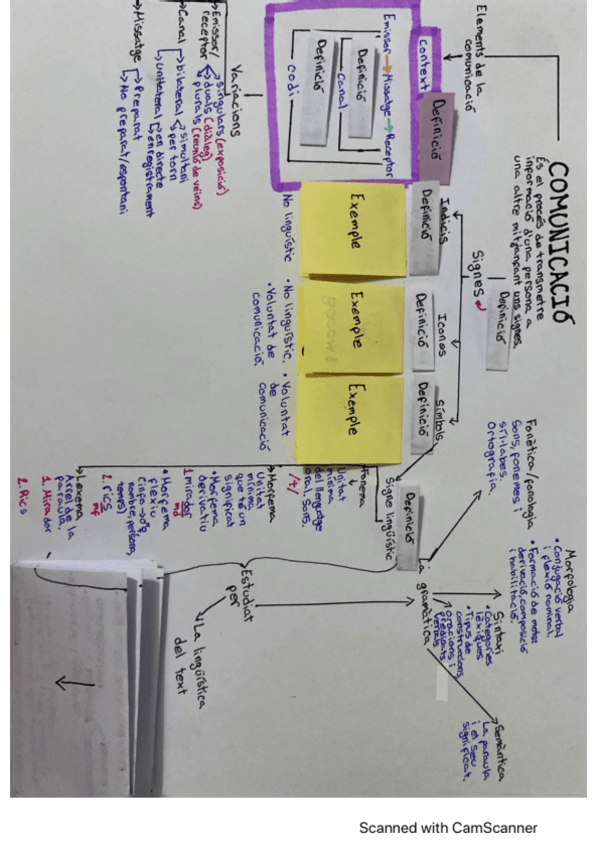 COMUNICACIÓ
És el procés de transmetre
informació d'una persona a
una altre mitjançant uns signes.
Elements de la
comunicació
Context
Definició
Emissor → Missatge → Receptor
Definició
Canal
Definició
Codi
Variacions
→ Emissor/
receptor
singulars (exposició)
duals (diàleg)
plurals (reunió de veïns)
→ Canal
bilateral
simultani
per torn
unilateral
en directe
enregistrament
→ Missatge
Preparat
No preparat/espontani
Definició
Signes
Indicis
Definició
Exemple
No lingüístic
Icones
Definició
Exemple
• No lingüístic.
• Voluntat de
comunicació.
Símbols
Definició
Exemple
• Voluntat
de
comunicació
Definició
Signe lingüístic
Fonema
Unitat
mínima
del llenguatge
oral. Sons.
/t/
→ Morfema
Unitat
mínima
que té un
significat
• Morfema
derivatiu
1. mirador
md
• Morfema
flexiu
temps)
2. rics
mf
→ Lexema
Arrel de la
paraula
1. Mirador
2. Rics
La
gramàtica
Fonètica/fonologia
Sons, fonemes i
síl·labes.
Ortografia.
Morfologia
• Conjugació verbal
i flexió nominal.
• Formació de mots:
derivació, composició
i habilitació.
Sintaxi
• Categories
lèxiques
• Tipus de
construccions
oracions i
predicats
verbals
Semàntica
La paraula
i el seu
significat.
Estudiat
per
→ La lingüística
del text
Scanned with CamScanner